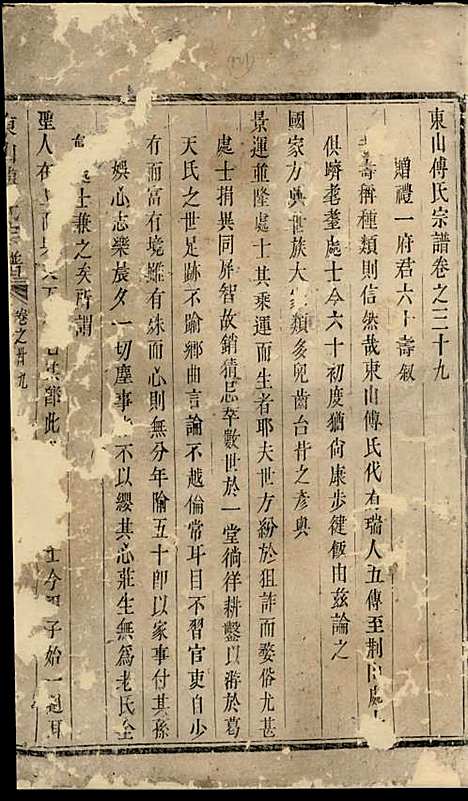 東山傅氏宗譜卷之三十九
贈禮一府君六十壽敘
壽稱種類則信然哉東山傅氏代有瑞人五傳至荆山處士
俱躋耄耋處士今六十初度猶尙康步健飯由茲論之
國家方興世族大類多兒齒台背之彥與
景運並隆處士其乘運而生者耶夫世方紛於狙詐而婺俗尤甚
處士捐異同屏智故銷猜忌萃數世於一堂徜徉耕鑿以游於葛
天氏之世是跡不踰鄉曲言論不越倫常耳目不習官吏自少
有而富有境雖有殊而心則無分年踰五十卽以家事付其孫
娛心志樂晨夕一切塵事不以纓其心莊生無爲老氏全
處士兼之矣所謂
聖人在此士今子始一週耳
卷之卅九